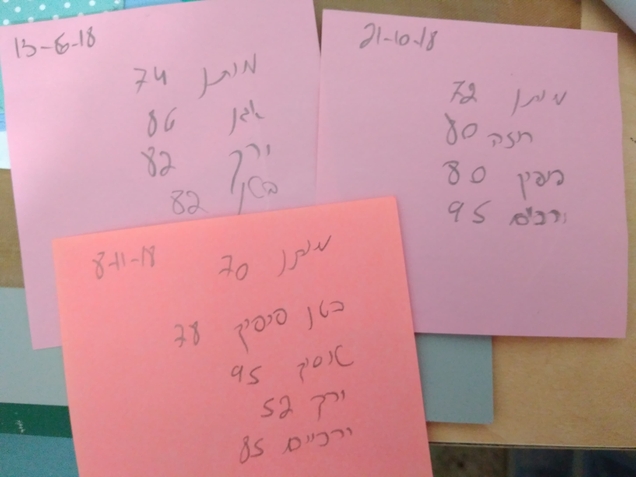 13-6-18
מותן 74
אגן 86
ירך 82
בטן 82
21-10-18
מותן 72
חזה 80
פופיק 80
ירכיים 95
8-11-18
מותן 70
בטן פיפיק 78
אוסיק 95
ירך 52
ירכיים 85